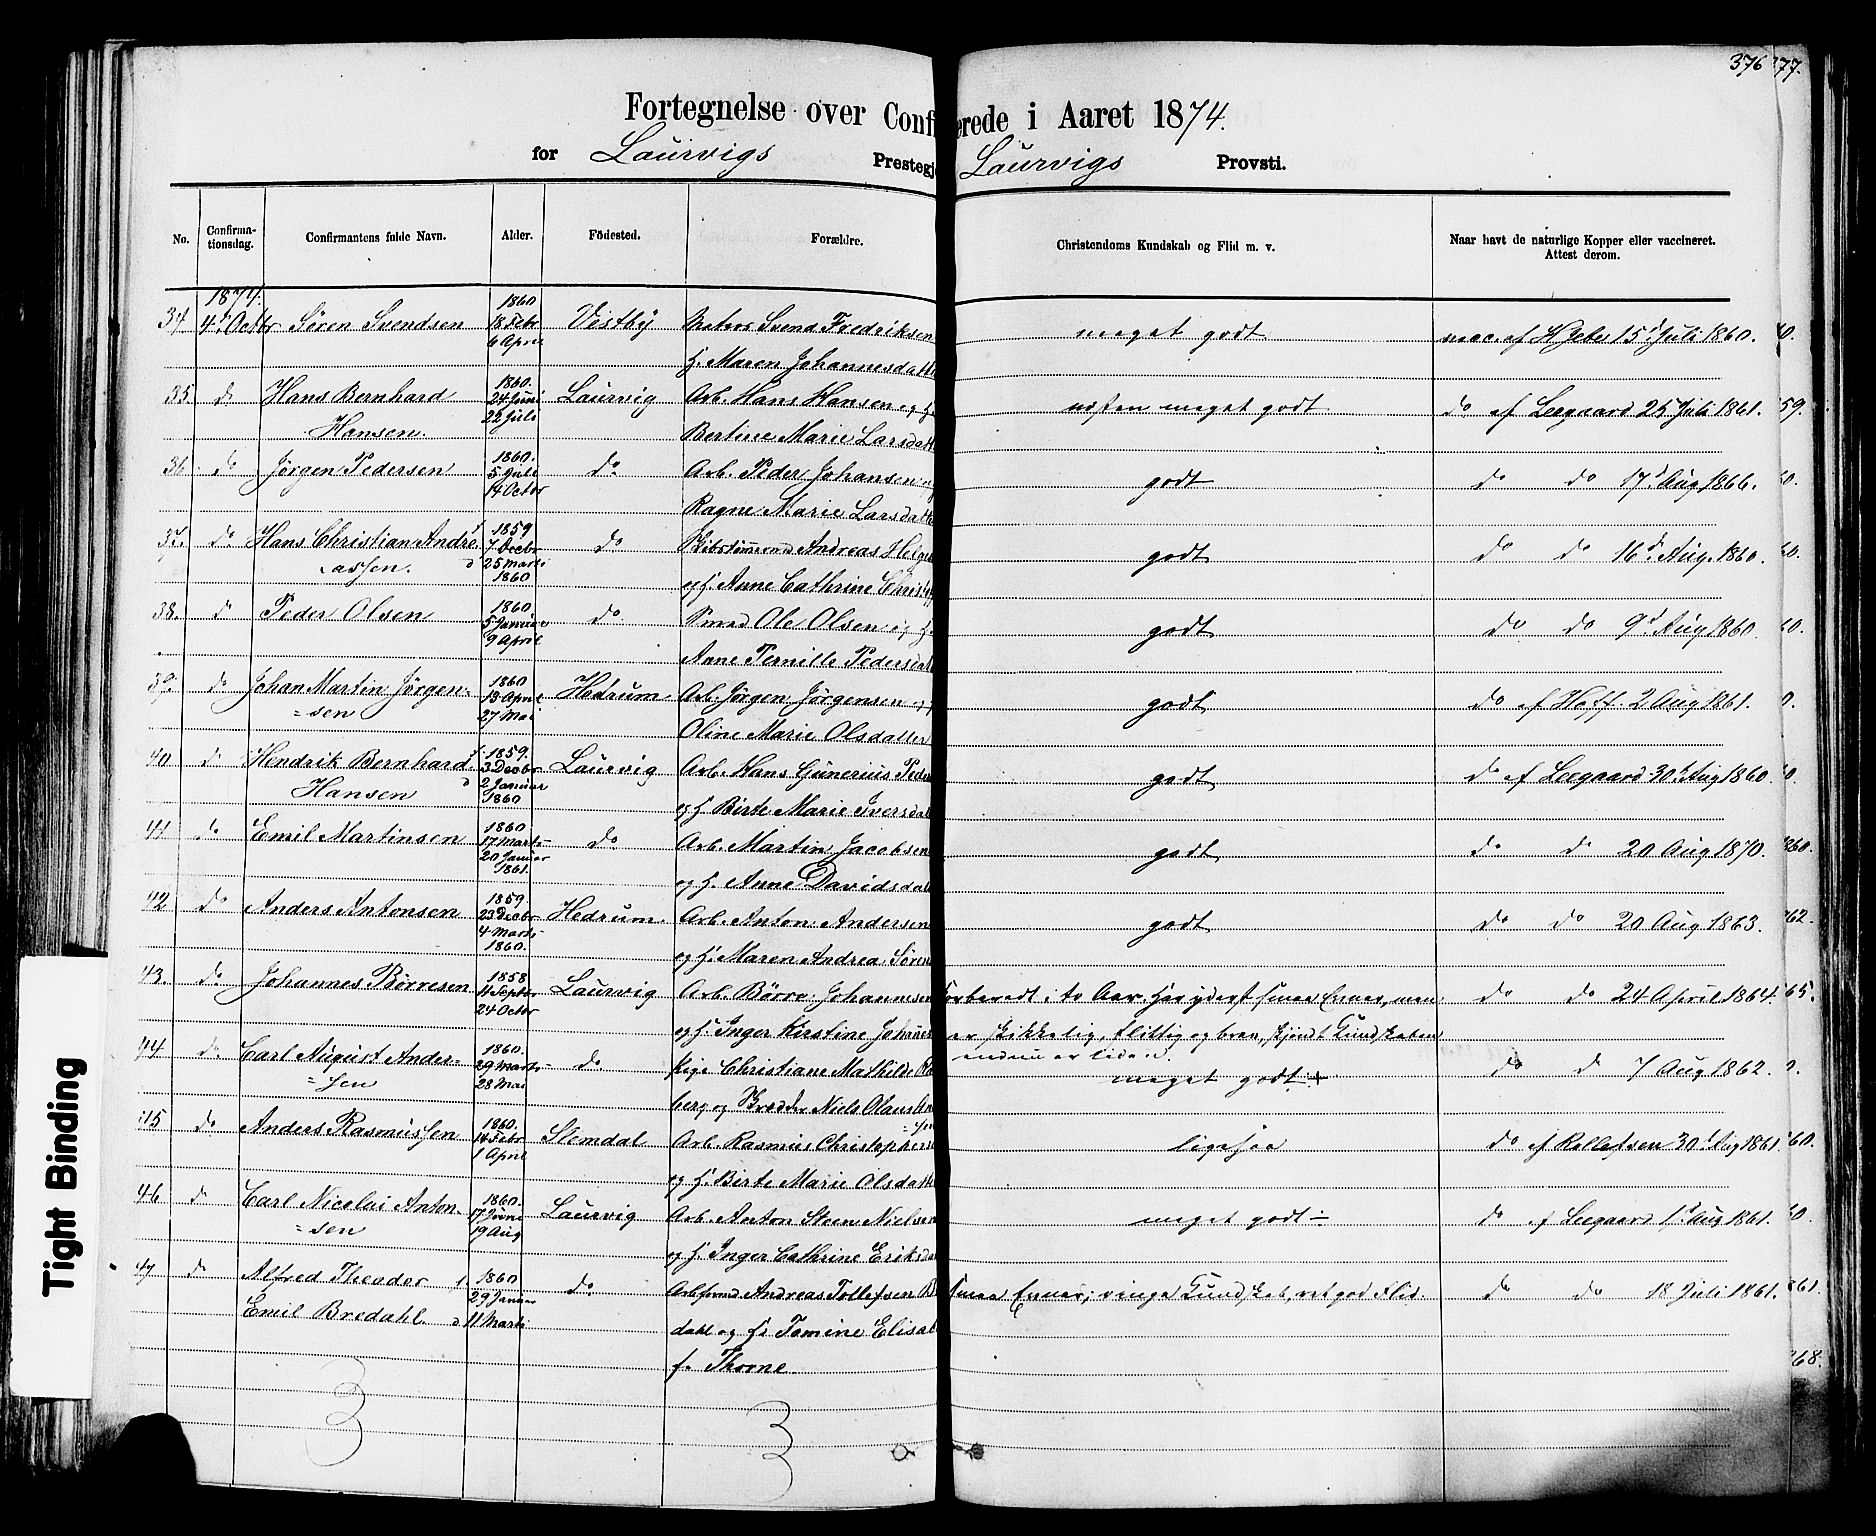 376 77.
Fortegnelse over Conf erede i Aaret 1874.
for Laurvigs Prestegj Laurvigs Provsti.
No. Confirma-tionsdag. Confirmantens fulde Navn. Alder. Fødested. Forældre. Christendoms Kundskab og Flid m. v. Naar havt de naturlige Kopper eller vaccineret. Attest derom.
1874. 1860
34 4d Octbr Søren Svendsen 18 Febr Vestby Matros Svend Fredriksen meget godt vac. af 15d Juli 1860. 0.
6 April h. Maren Johannesdatt
35. do Hans Bernhard 1860. 24 Juni Laurvig Arb. Hans Hansen og h. næsten meget godt do af Leegaard 25 Juli 1861. 59.
Hansen. 22 Juli Bertine Marie Larsdatt
36 do Jørgen Pedersen 1860. 5 Juli do Arb. Peder Johansen og godt do do 17d Aug 1866. 60.
14 Octbr Ragne Marie Larsdatt
37. do Hans Christian Andre f 1859 7 Decbr do Skibstømmermd Andreas Helge godt do do 16d Aug. 1860. 60.
assen. d 25 Marts 1860 og h. Anne Cathrine Christ
38. do Peder Olsen 1860. 5 Januar do Ole Olsen og h. godt do do 9d Aug 1860. 60.
9 April Anne Pernille Pedersdat
39. do Johan Martin Jørgen- 1860 13 April Hedrum Arb. Jørgen Jørgensen og godt do af Hoff. 2 Aug 1861. 0.
=sen 27 Mai Oline Marie Olsdatter
40 do Hendrik Bernhard f. 1859. 3 Decbr Laurvig Arb. Hans Gunerius Peder godt do af Leegaard 30d Aug 1860. 0.
Hansen d 2 Januar 1860 og h. Birte Marie Iversdat
41 do Emil Martinsen 1860 17 Marts do Arb. Martin Jacobsen godt do do 20 Aug 1870. 860.
20 Januar 1861. og h. Anne Davidsdat
42 do Anders Antonsen 1859. 23 Decbr Hedrum Arb. Anton Andersen godt do do 20 Aug 1863. 62.
4 Marts 1860. og h. Maren Andrea Søren
43. do Johannes Børresen 1858 11 Septbr Laurvig Arb. Børre Johannsen forberedt i to Aar. Har yderst smaa Evner, men do do 24 April 1864. 65.
24 Octbr og h. Inger Kirstine Johannes er skikkelig, flittig og brav, skjøndt Kundskaben
44 do Carl August Ander- 1860. 29 Marts do endnu er liden.
=sen 28 Mai Pige Christiane Mathilde meget godt + do do 7 Aug 1862. 0.
berg og Niels Olaus
45 do Anders Rasmussen 1860. 14 Febr Slemdal Arb. Rasmus Christophers ligesaa do af Rollefsen 30d Aug 1861. 60.
1 April og h. Birte Marie Olsdatt
46 do Carl Nicolai Anton- 1860. 17 Juni Laurvig Arb. Anton Steen Nielsen meget godt ÷ do af Leegaard 1d Aug 1861. 60.
=sen 19 Aug og h. Inger Cathrine Eriksda
47 do Alfred Theodor f 1860 29 Januar do Andreas Tollefsen B Smaa Evner, ringe Kundskab, ret god Flid. do do 18 Juli 1861. 861.
Emil Bredahl d 11 Marts dahl og h. Tomine Elisab
f. Thorne. 68.
3 3
Tight Binding